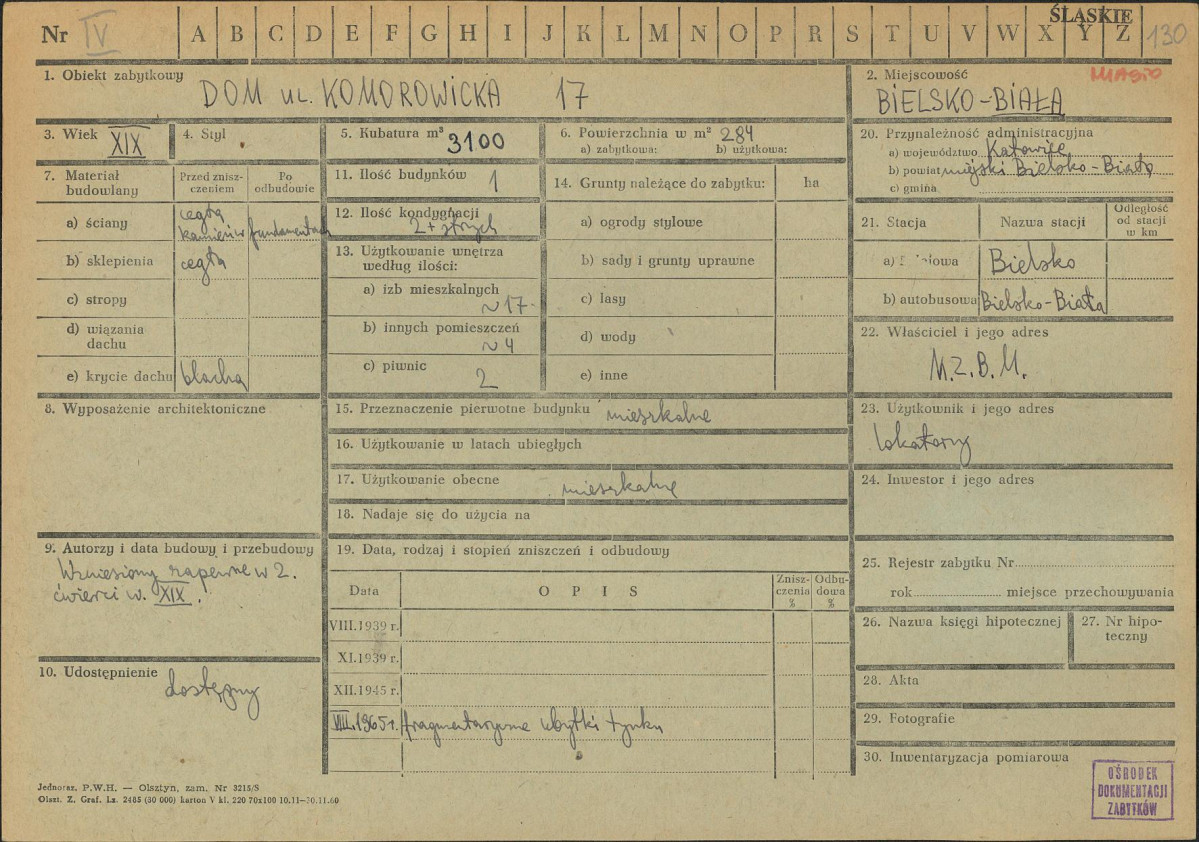 ŚLĄSKIE
Nr IV A B C D E F G H I J K L M N O P R S T U V W X Y Z 130
1. Obiekt zabytkowy
DOM UL. KOMOROWICKA 17
2. Miejscowość MIASTO
BIELSKO-BIAŁA
3. Wiek XIX
4. Styl
5. Kubatura m³ 3100
6. Powierzchnia w m² 284
a) zabytkowa: b) użytkowa:
20. Przynależność administracyjna
a) województwo Katowice
b) powiat miejski Bielsko-Biała
c) gmina
7. Materiał budowlany
Przed zniszczeniem
Po odbudowie
a) ściany cegła
kamień w fundamentach
b) sklepienia cegła
c) stropy
d) wiązania dachu
e) krycie dachu blacha
11. Ilość budynków 1
12. Ilość kondygnacji
2 + strych
13. Użytkowanie wnętrza
według ilości:
a) izb mieszkalnych
~17
b) innych pomieszczeń
~4
c) piwnic
2
14. Grunty należące do zabytku: ha
a) ogrody stylowe
b) sady i grunty uprawne
c) lasy
d) wody
e) inne
21. Stacja Nazwa stacji Odległość od stacji w km
a) Bielsko
b) autobusowa Bielsko-Biała
22. Właściciel i jego adres
M.Z.B.M.
8. Wyposażenie architektoniczne
15. Przeznaczenie pierwotne budynku mieszkalne
16. Użytkowanie w latach ubiegłych
17. Użytkowanie obecne mieszkalne
18. Nadaje się do użycia na
23. Użytkownik i jego adres
lokatorzy
24. Inwestor i jego adres
9. Autorzy i data budowy i przebudowy
Wzniesiony zapewne w 2.
ćwierci w. XIX.
10. Udostępnienie
dostępny
19. Data, rodzaj i stopień zniszczeń i odbudowy
Data OPIS Zniszczenia % Odbudowa %
VIII.1939 r.
XI.1939 r.
XII.1945 r.
VIII.1965 r. fragmentaryczne ubytki tynku
25. Rejestr zabytku Nr
rok miejsce przechowywania
26. Nazwa księgi hipotecznej
27. Nr hipoteczny
28. Akta
29. Fotografie
30. Inwentaryzacja pomiarowa
OŚRODEK
DOKUMENTACJI
ZABYTKÓW
Jednoraz. P.W.H. — Olsztyn, zam. Nr 3215/S
Olszt. Z. Graf. Lz. 2485 (30 000) karton V kl. 220 70x100 10.11—30.11.60